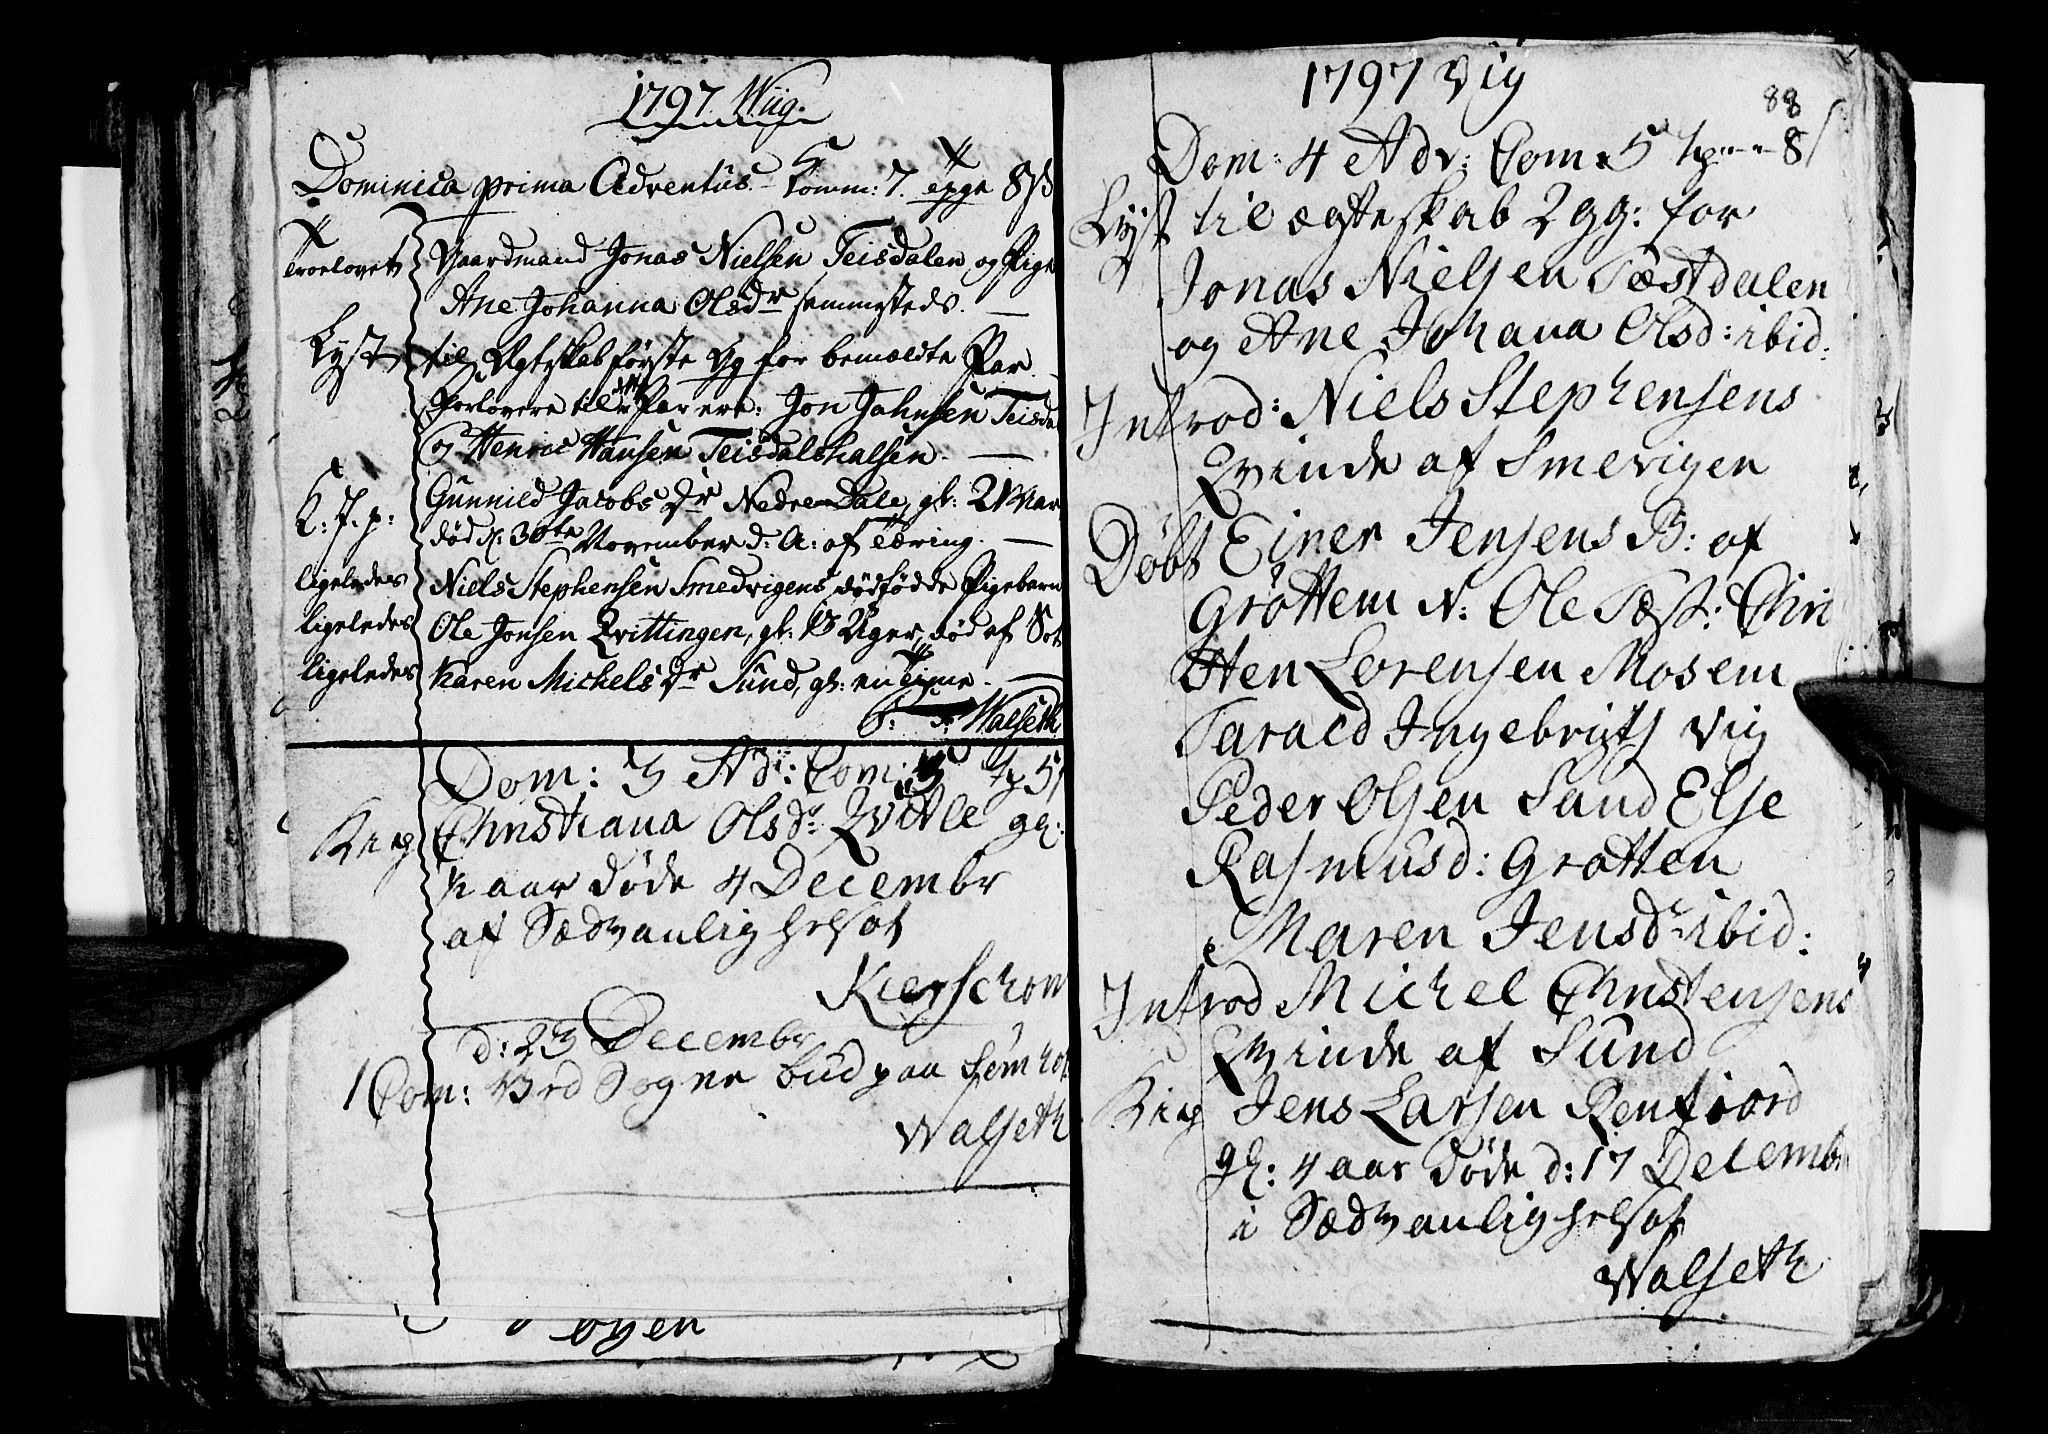 1797 Wiig.
Dominica prima Adventus. Komm: 7. 8 ß
Troelovet Gaardmand Jonas Nielsen Teisdalen og Pige
Ane Johanna Olsdr sammesteds.
Lyst til Ægteskab første Gg for bemældte Par
Forlovere til Par ere: Jon Johnsen Teisda
og Henric Hansen Teisdalshalsen.
K: J. p: Gunnild Jacobs Dr Nedre Dale, gl: 21 Aar
død d: 30te November d: A: af Tæring.
ligeledes Niels Stephensen Smedvigens dødfødde Pigebarn
ligeledes Ole Jonsen Qvittingen, gl: 13 Uger, død af Sot
ligeledes Karen Michels Dr Sund, gl: en Time.
Walseth
Dom: 3 Adv: Com: 5
Kirg Christiana Olsdr Qvitle gl:
½ aar døde 4 Decembr
af Sædvanlig helsot
Kierschow
d: 23 Decembr
1 Com: ved Sogne bud paa
Walseth
oyen
1797 Vig
88
Dom: 4 Adv: Com 5 8
Lyst til ægteskab 2 gg: for
Jonas Nielsen Tæstdalen
og Ane Johana Olsd: ibid:
Introd: Niels Stephensens
Qvinde af Smevigen
Døbt Einer Jensens B: af
Grøttem N: Ole Test: Chri
sten Lorensen Mosem
Tarald Ingebrigts Vig
Peder Olsen Sund Else
Rasmusd: Grøtten
Maren Jensdr ibid:
Introd Michel Christensens
Qvinde af Sund
Kirg Jens Larsen Renfiord
gl: 4 aar døde d: 17 Decembr
i Sædvanlig helsot
Walseth